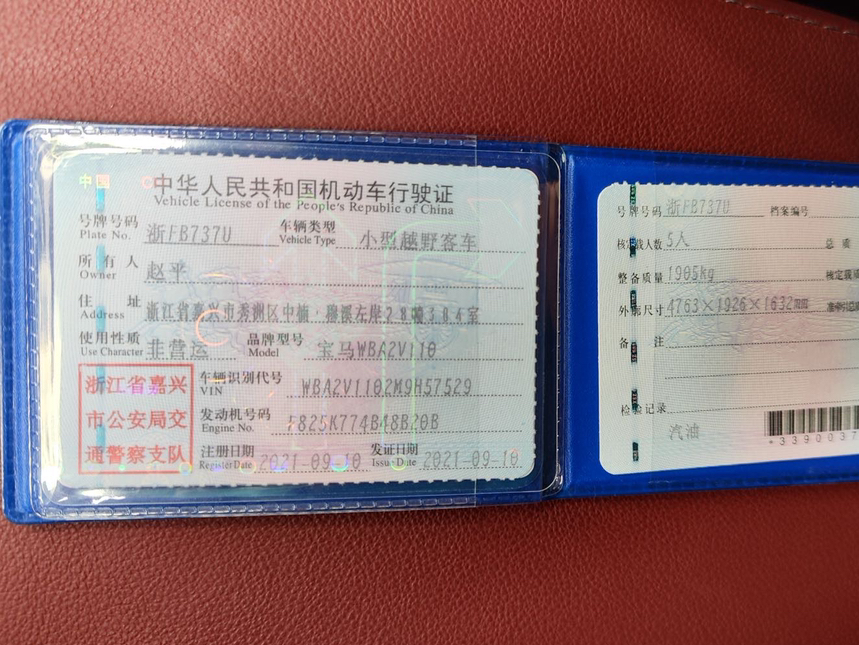 中国
中华人民共和国机动车行驶证
Vehicle License of the People's Republic of China
号牌号码 Plate No. 浙FB737U 车辆类型 Vehicle Type 小型越野客车
所有人 Owner 赵平
住址 Address 浙江省嘉兴市秀洲区中楠·碧溪左岸28幢304室
使用性质 Use Character 非营运 品牌型号 Model 宝马WBA2V110
浙江省嘉兴
市公安局交
通警察支队
车辆识别代号 VIN WBA2V1102M9H57529
发动机号码 Engine No. F825K774B48B20B
注册日期 Register Date 2021-09-10 发证日期 Issue Date 2021-09-10
号牌号码 浙FB737U 档案编号
核定载人数 5人 总质
整备质量 1905kg 核定载质
外廓尺寸 4763×1926×1632mm 准牵引总
备注
检验记录
汽油
*339003